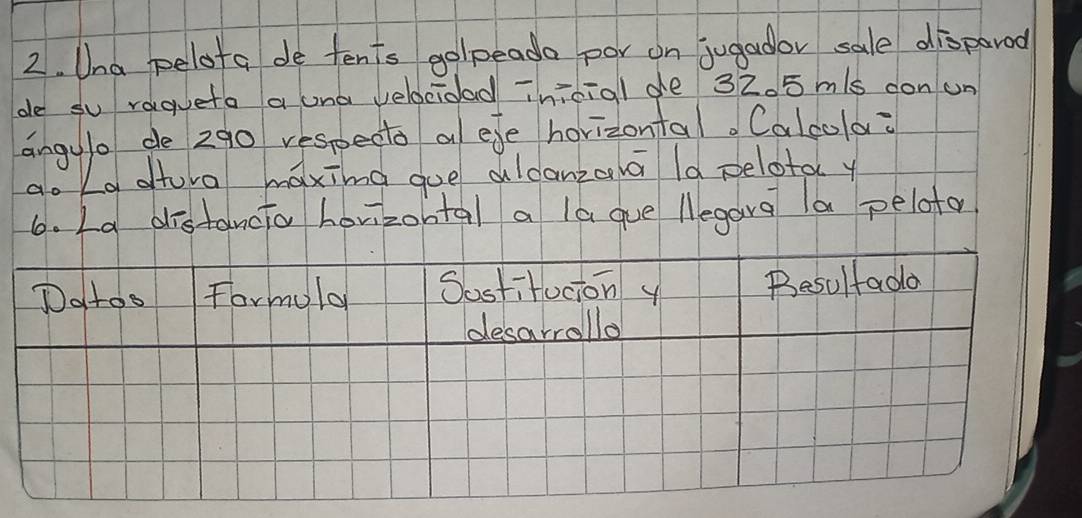 2. Una pelota de tenis golpeada por un jugador sale disparad
de su raqueta a una velocidad inicial de 32.5 m/s con un
ángulo de 290 respecto al eje horizontal. Calcula:
a. La altura máxima que alcanzará la pelota y
b. La distancia horizontal a la que llegará la pelota
Datos Formula Sustitución y Resultado
desarrollo